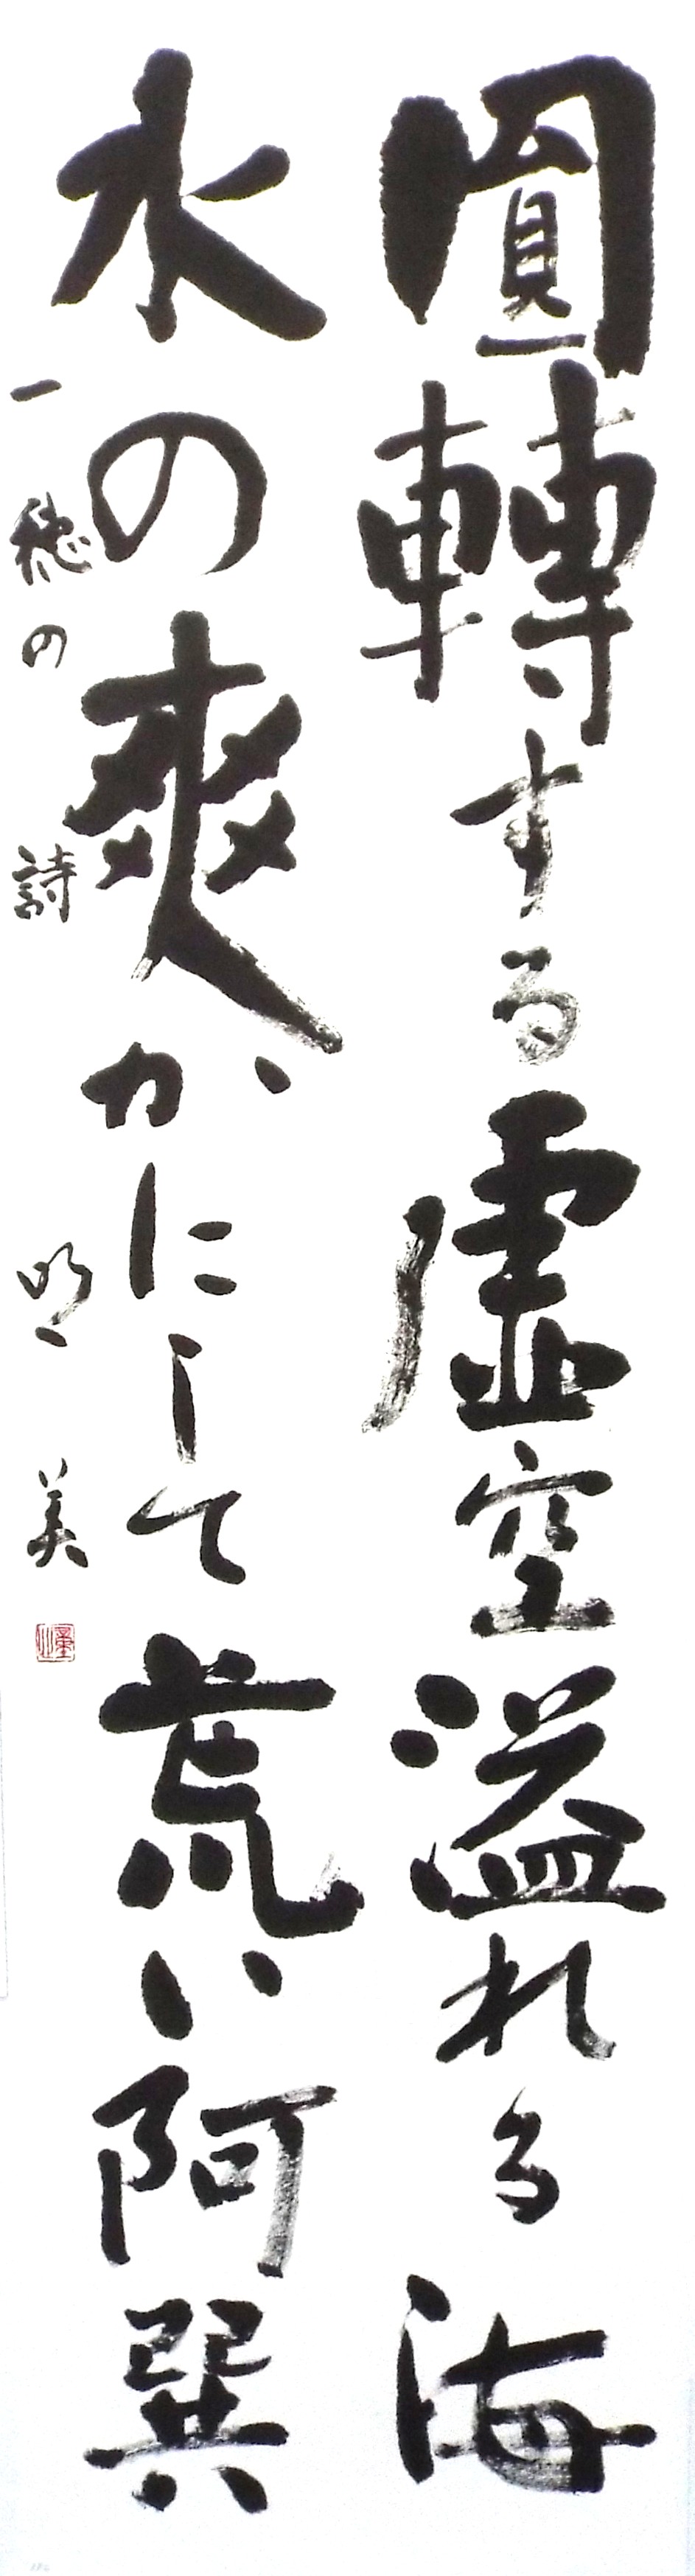 圓轉する虚空溢れる海
水の爽かにして荒い阿巽
一穂の詩 明美